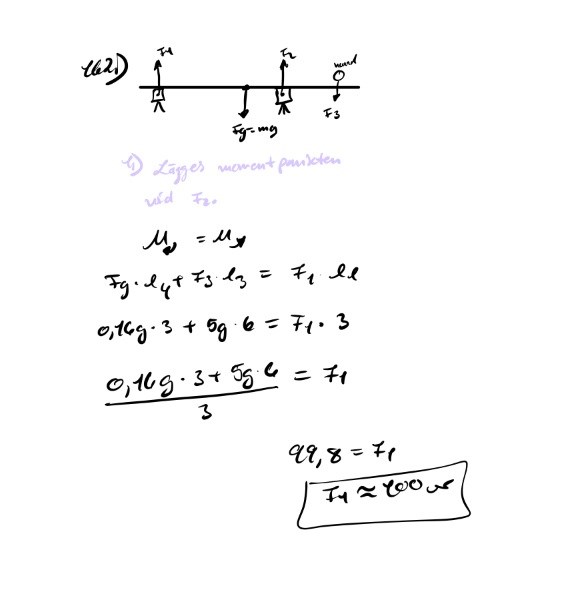 162.)
F1
F2
mand
F3
Fg=mg
1) Lägges momentpunkten
vid F2.
M↻ = M↺
Fg·l4 + F3·l3 = F1·l1
0,16g·3 + 5g·6 = F1·3
0,16g·3 + 5g·6 = F1
3
99,8 = F1
F1 ≈ 100 N